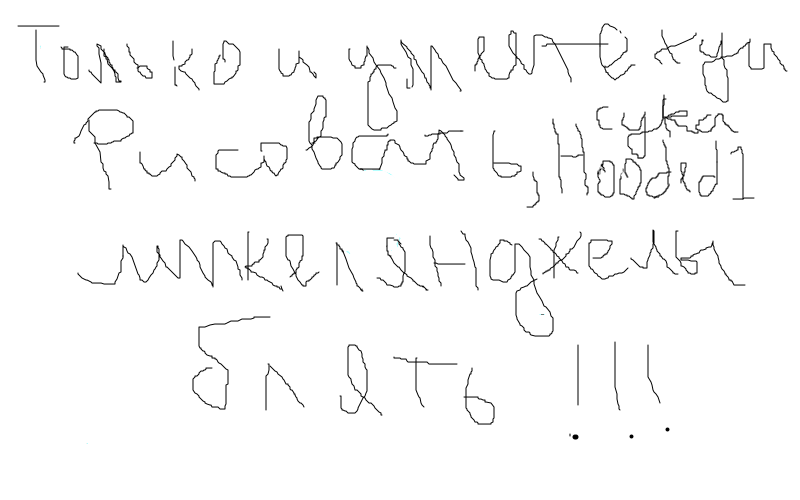 Только и умеете хуи
Рисовать, сука Hooded1
микеленджелы
блеть !!!